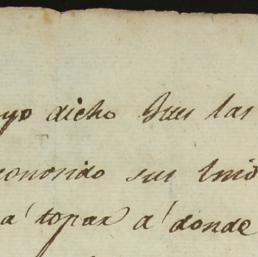 yo dicho Jues las
conosido sus
a topar a donde